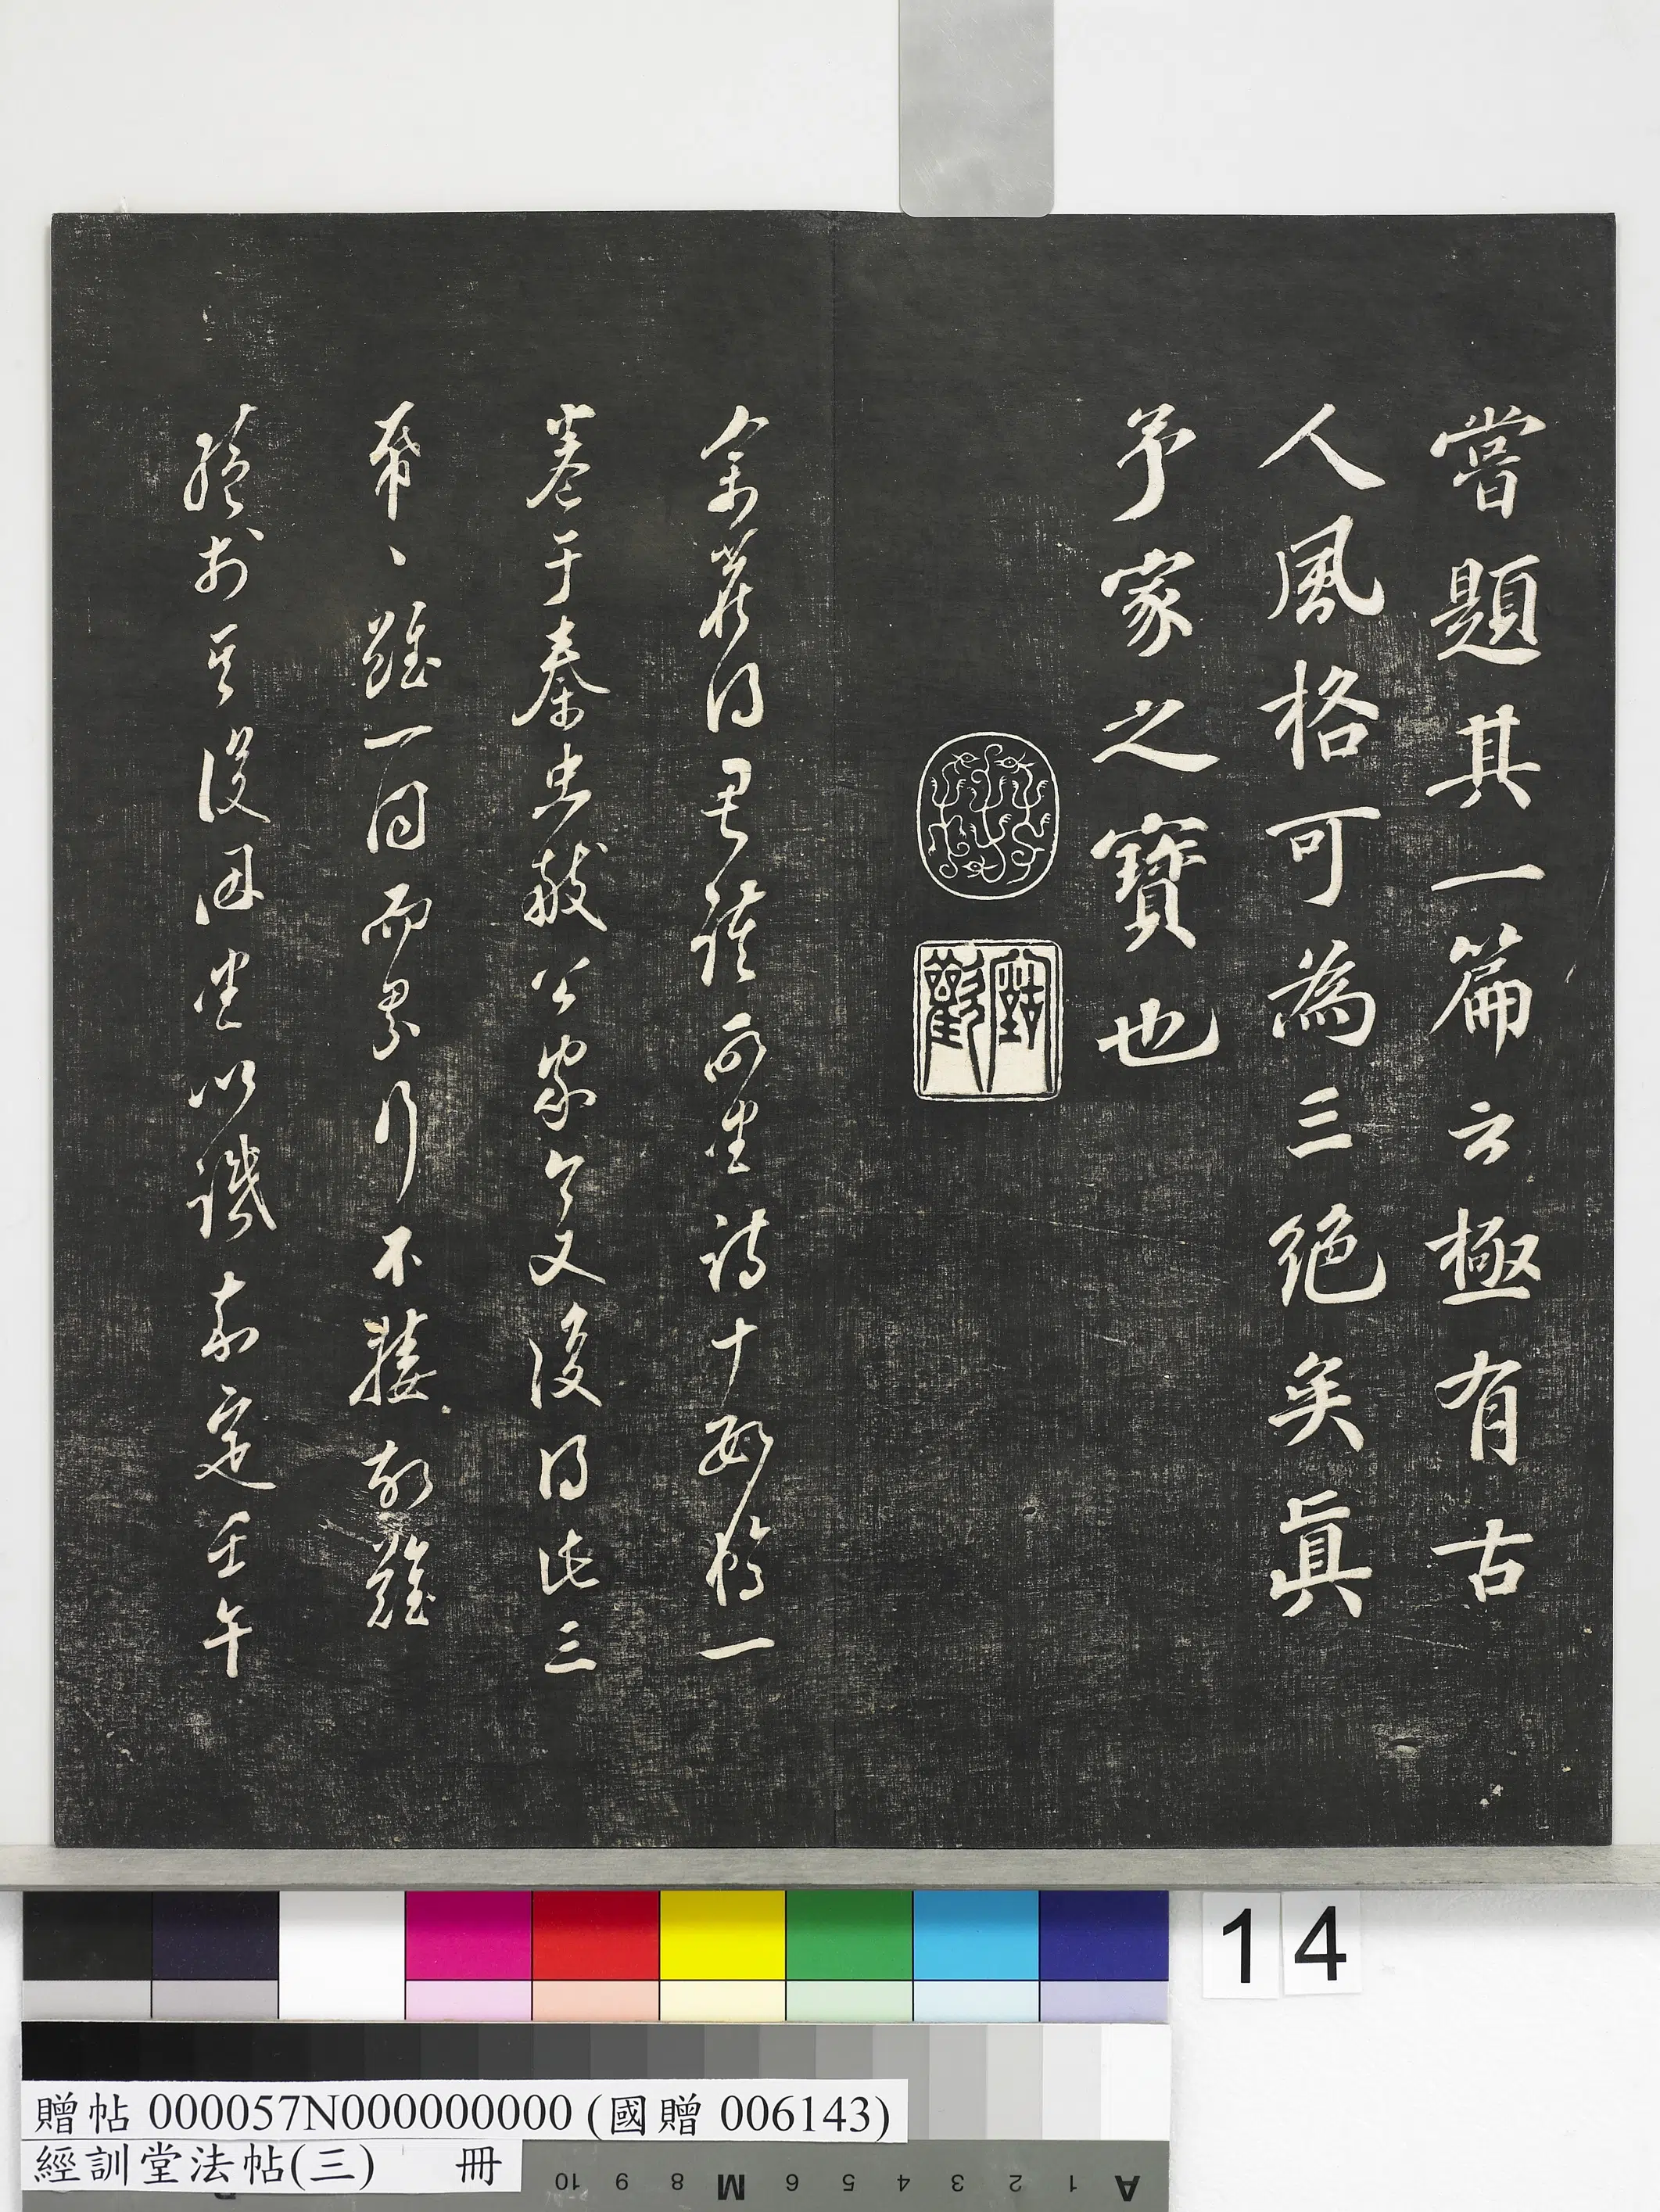 嘗題其一篇云極有古
人風格可為三絕矣真
予家之寶也
余舊得君謨所書詩十數稿一
卷于秦忠獻公家今又復得此三
帋〻雖一同而界行不接故難
續於其後因書以識嘉定壬午
14
贈帖 000057N000000000 (國贈 006143)
經訓堂法帖(三) 冊
10 9 8 M 6 5 4 3 2 1 A